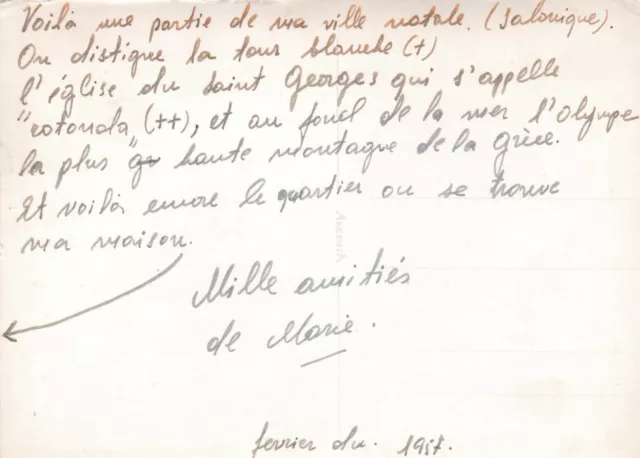 Voilà une partie de ma ville natale. (Salonique).
On distigue la tour blanche (+)
l'église du Saint Georges qui s'appelle
"rotonda" (++), et au fond de la mer l'Olympe
la plus haute montagne de la Grèce.
Et voilà encore le quartier ou se trouve
ma maison.
Mille amitiés
de Marie.
fevrier du. 1957.